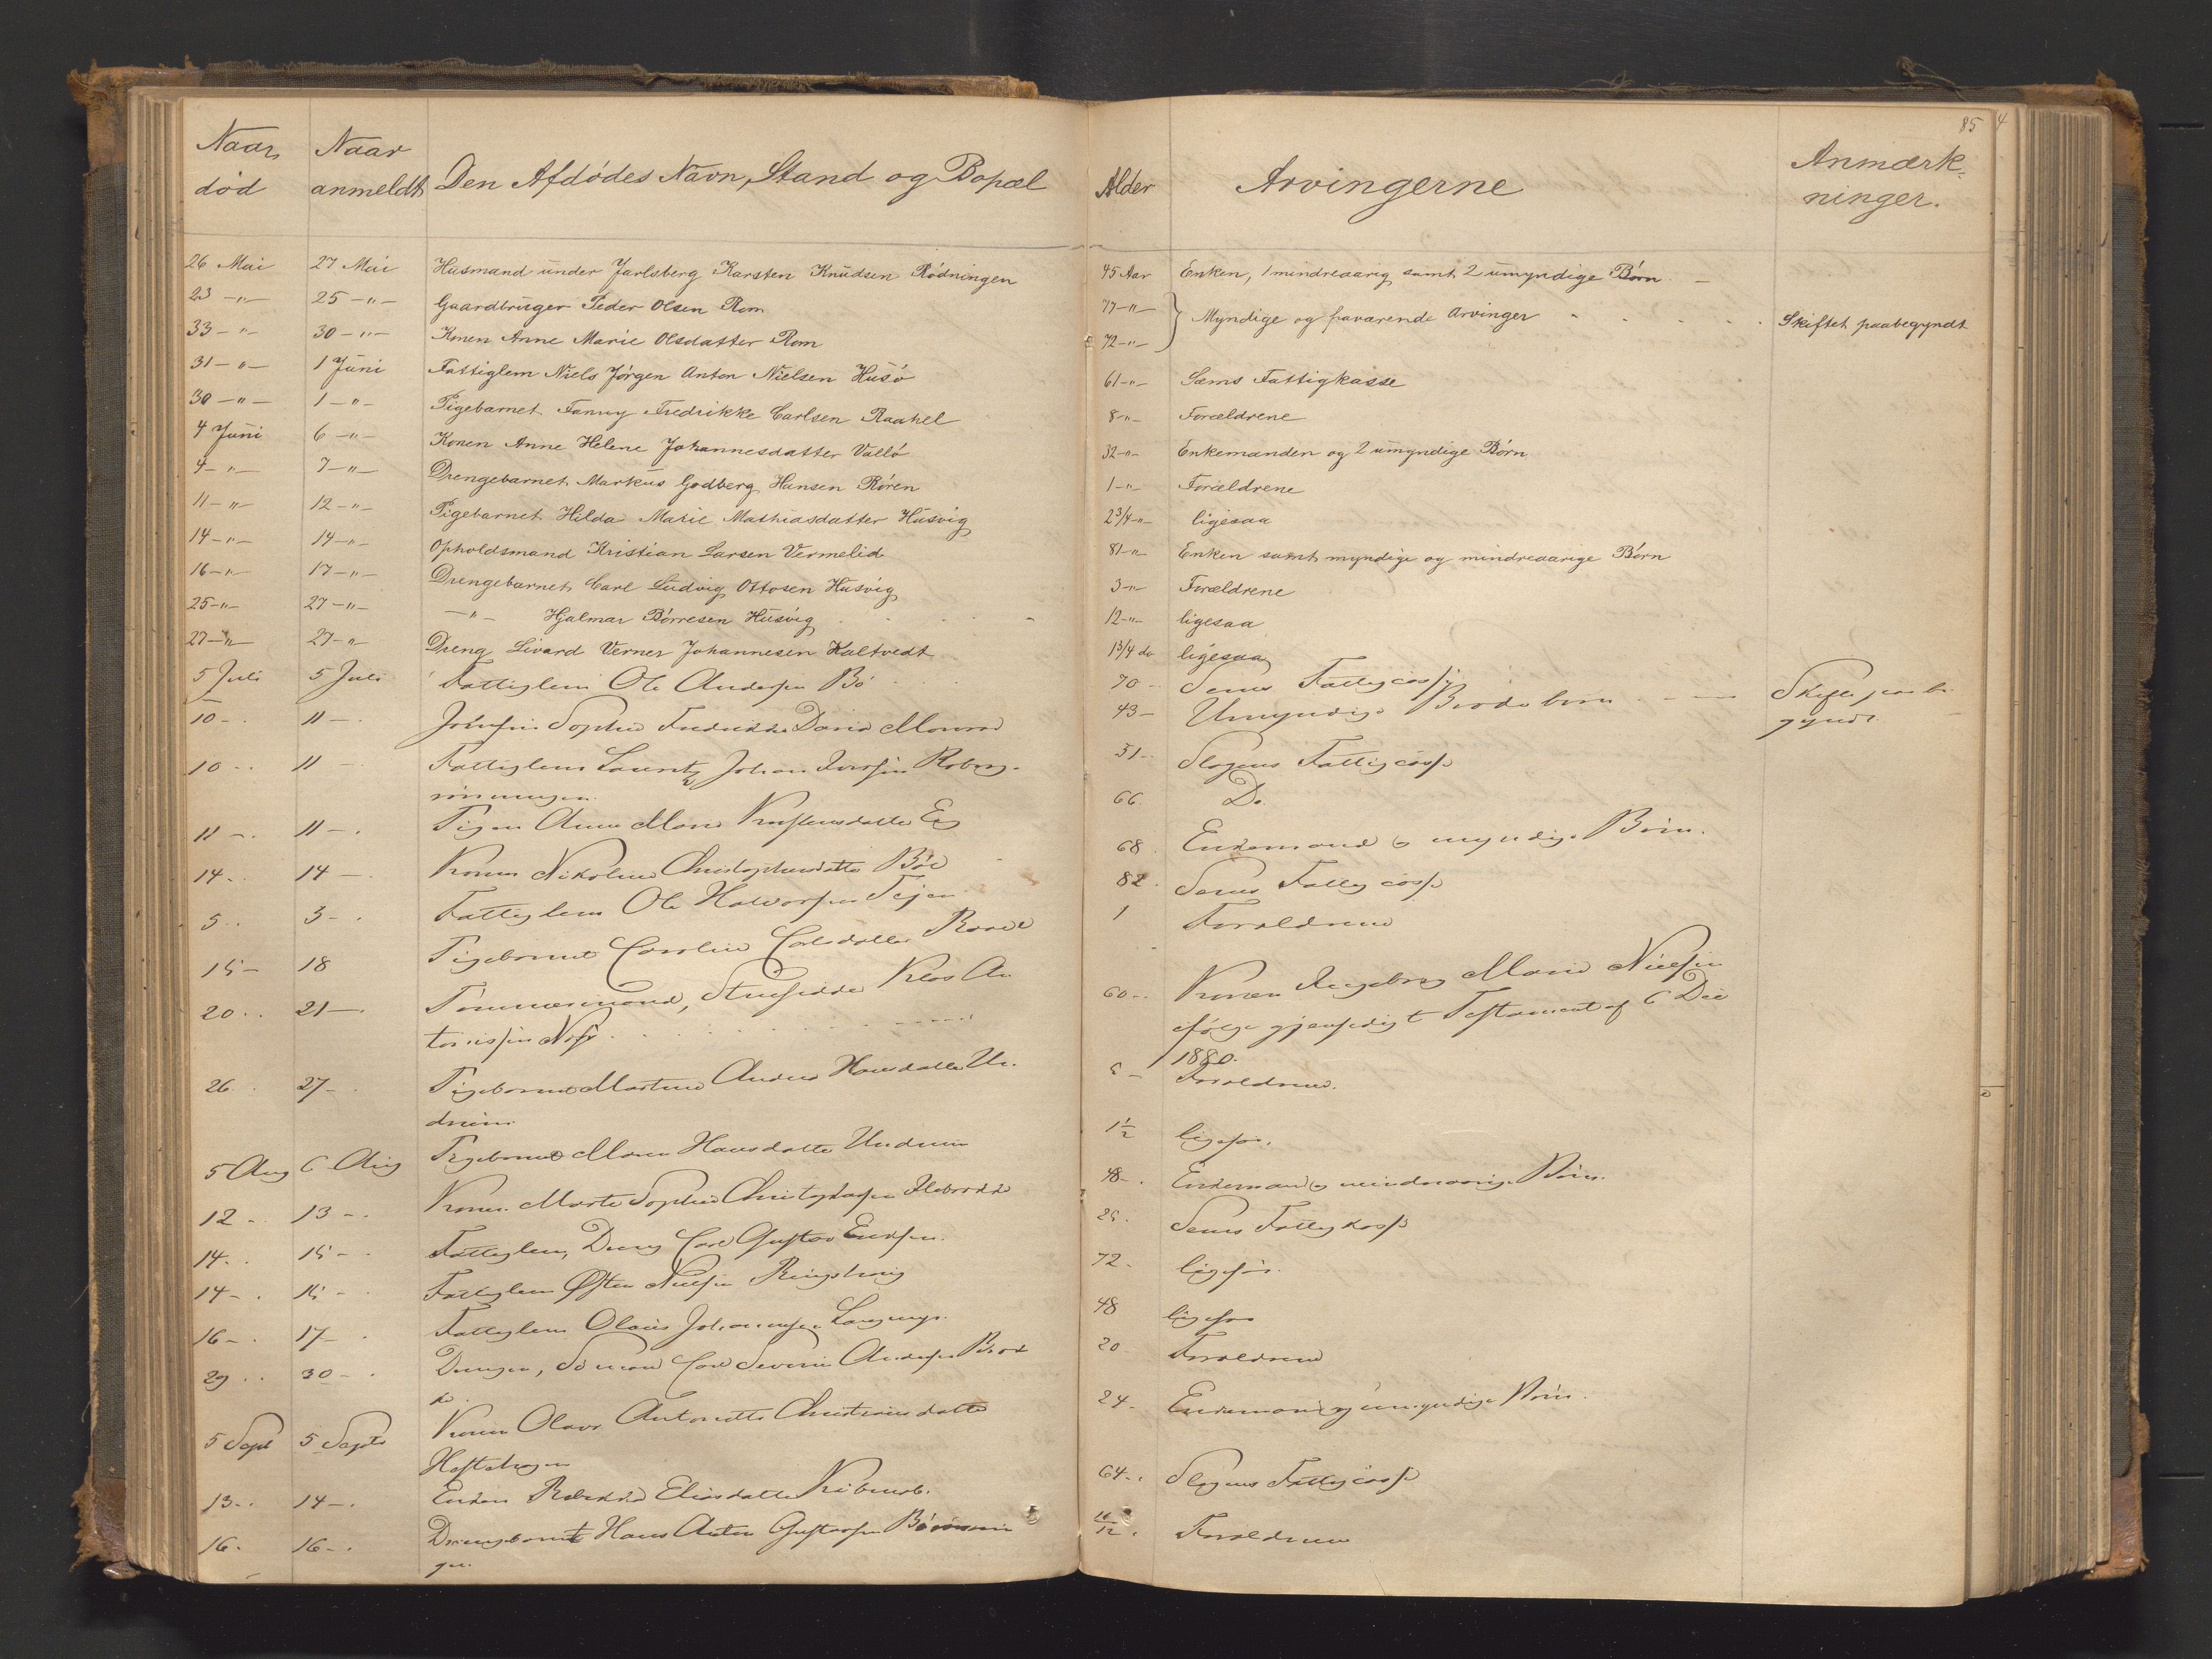 Naar død Naar anmeldt Den Afdødes Navn, Stand og Bopæl
26 Mai 27 Mai Husmand under Jarlsberg Karsten Knudsen Rødningen
23 -"- 25 -"- Gaardbruger Peder Olsen Rom
33 -"- 30 -"- Konen Anne Marie Olsdatter Rom
31 -"- 1 Juni Fattiglem Niels Jørgen Anton Nielsen Husø
30 -"- 1 -"- Pigebarnet Fanny Fredrikke Carlsen Raahel
4 Juni 6 -"- Konen Anne Helene Johannesdatter Vallø
4 -"- 7 -"- Drengebarnet Markus Godberg Hansen Røren
11 -"- 12 -"- Pigebarnet Hilda Marie Mathiasdatter Husvig
14 -"- 14 -"- Opholdsmand Kristian Larsen Vermelid
16 -"- 17 -"- Drengebarnet Carl Ludvig Ottosen Husvig
25 -"- 27 -"- -"- Hjalmar Børresen Husvig
27 -"- 27 -"- Dreng Sivard Verner Johannesen Kaltvedt
5 Juli 5 Juli Fattiglem Ole Andersen Bø
10 - 11 - Sophie Fredrikke
10 - 11 - Fattiglem Lauritz Johan
11 - 11 - Pigen Anne Marie
14 - 14 - Konen Nikoline Christophersdatter Bøe
5 - 3 - Fattiglem Ole Halvorsen
15 - 18 Pigebarnet Caroline Carlsdatter
20 - 21 - Tømmermand,
26 - 27 - Pigebarnet Martine Andrea Hansdatter Un-
drum
5 Aug 6 Aug Pigebarnet Maren Hansdatter Undrum
12 - 13 - Konen Marte Sophie Christophersen
14 - 15 - Fattiglem, Dreng Carl Gustav
14 - 15 - Fattiglem Østen Nielsen Ringshaug
16 - 17 - Fattiglem Olaus Johannesen
29 - 30 - Drengen, Sømand Carl Severin Andersen
5 Sept 5 Septb Konen Olava Antonette Christiansdatter
13 - 14 - Enken Rebekka Eliasdatter
16 - 16 - Drengebarnet Hans Anton Gustavsen
85 4
Alder Arvingerne Anmærkninger.
45 Aar Enken, 1 mindreaarig samt 2 umyndige Børn
77 -"- Myndige og fraværende Arvinger Skiftet paabegyndt
72 -"-
61 -"- Sæms Fattigkasse
8 -"- Forældrene
32 -"- Enkemanden og 2 umyndige Børn
1 -"- Forældrene
2 3/4 -"- ligesaa
81 -"- Enken samt myndige og mindreaarige Børn
3 -"- Forældrene
12 -"- ligesaa
1 3/4 do ligesaa
70 - Sems Fattigcasse
43 - Umyndige Broderbørn Skifte paabe-
gyndt
51 - Slagens Fattigcasse
66. Do
68. Enkemand og myndige Børn.
82. Sems Fattigcasse
1 Forældrene
60 - Konen Ingeborg Marie Nielsen
ifølge gjensidigt Testament af 6 Dec
1880.
Forældrene.
1 1/2 ligesaa.
48 - Enkemand og mindreaarige Børn.
Sems Fattigkasse
72 - ligesaa.
48 ligesaa
20 Forældrene
24 - Enkemand og umyndige Børn.
64 - Slagens Fattigcasse
10/12. Forældrene